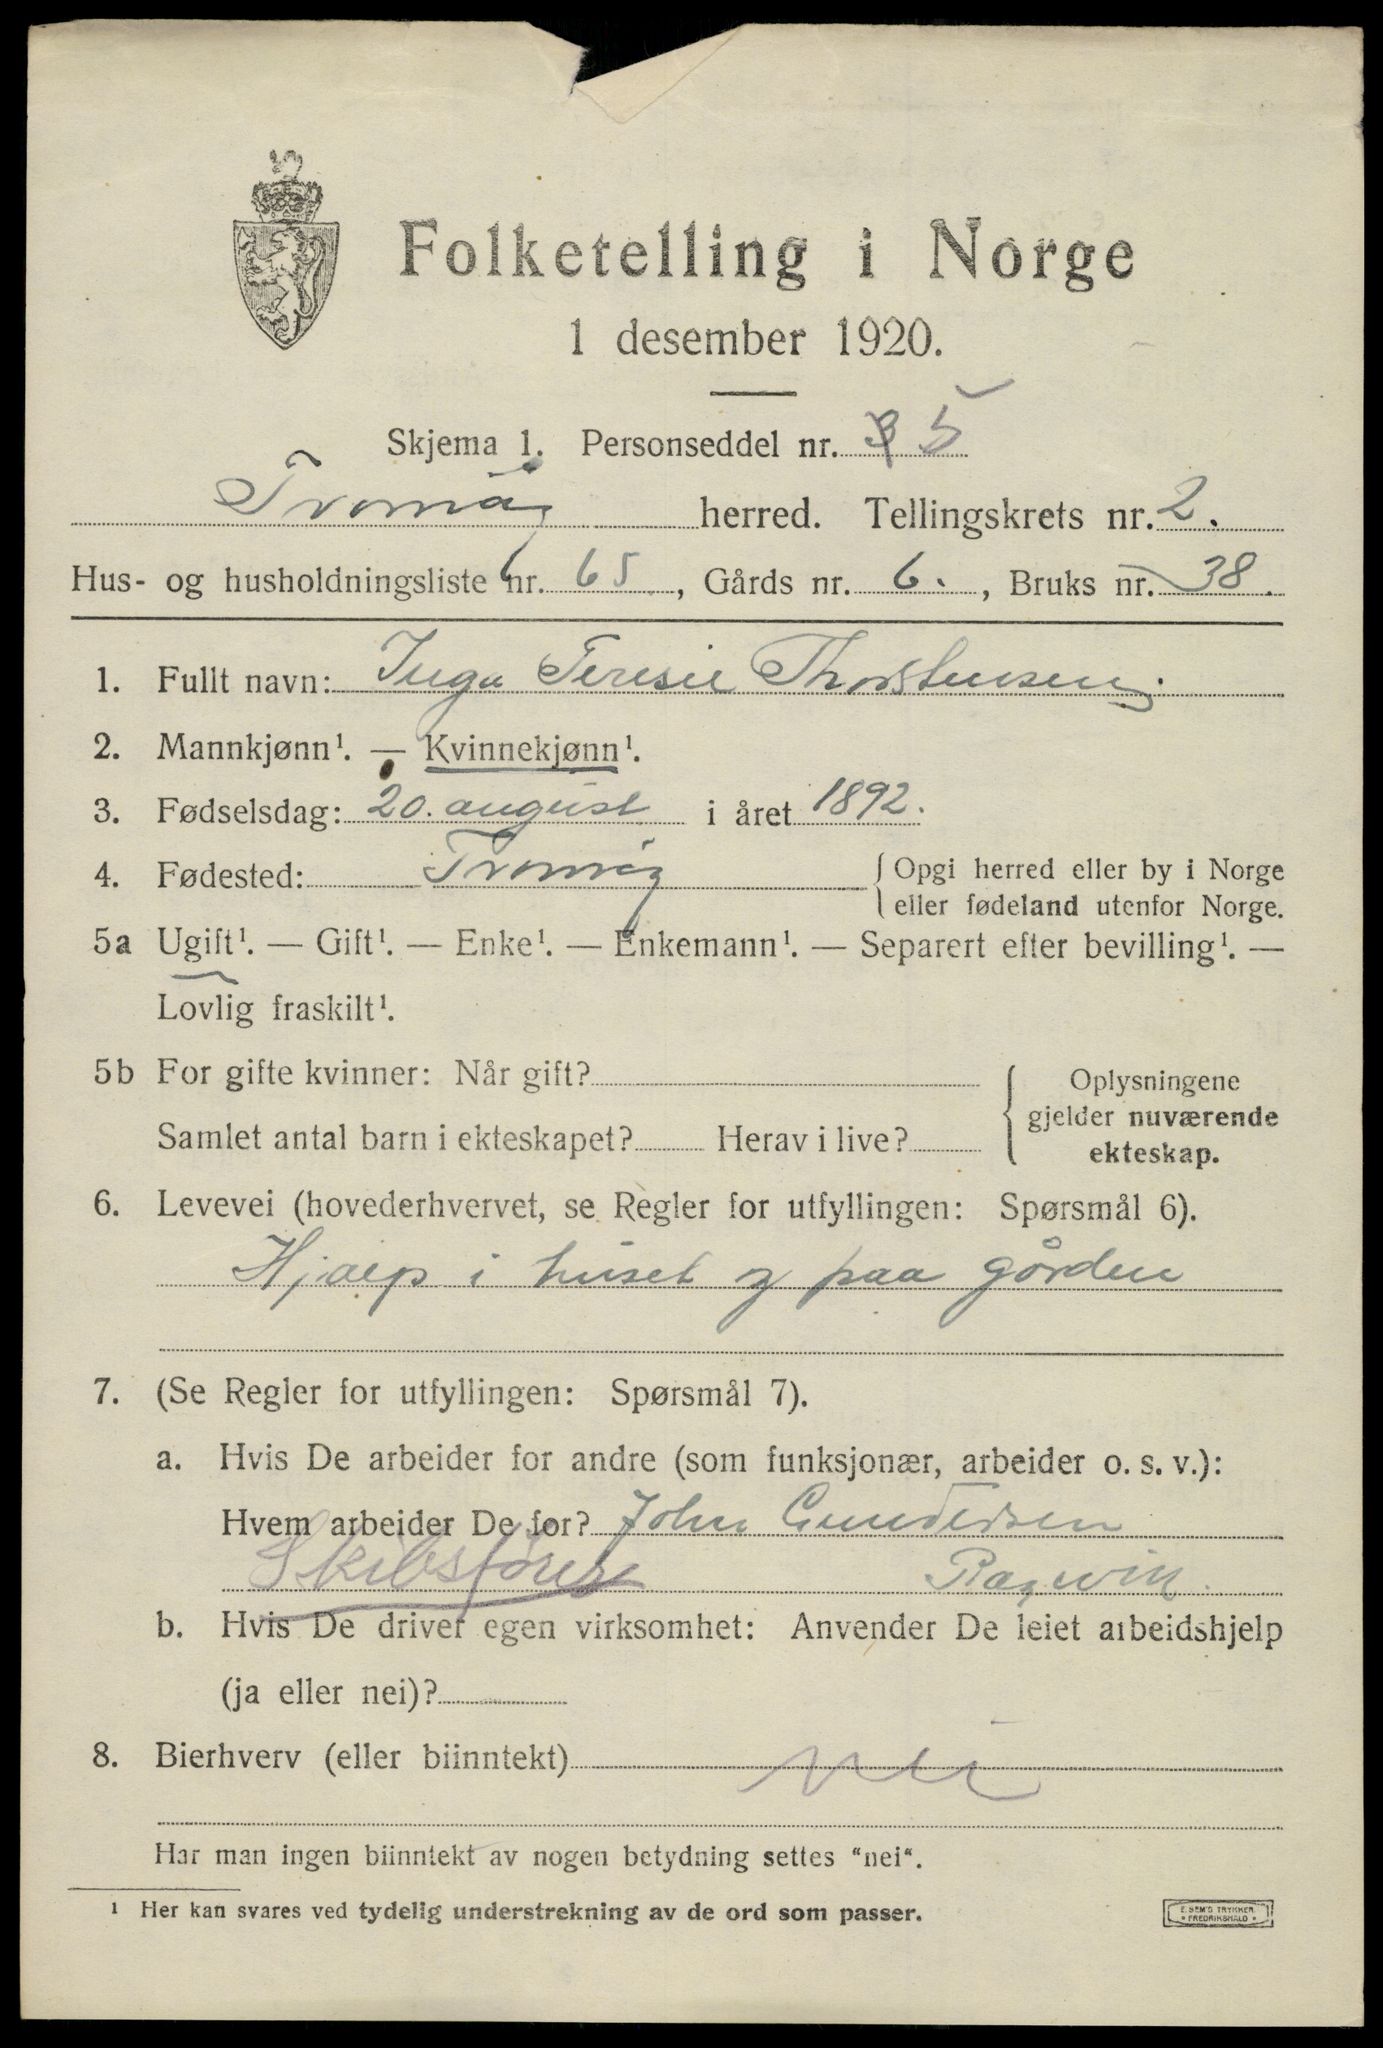 Folketelling i Norge
1 desember 1920.
Skjema 1. Personseddel nr. 3 5
Tromøy herred. Tellingskrets nr. 2.
Hus- og husholdningsliste nr. 65, Gårds nr. 6., Bruks nr. 38.
1. Fullt navn: Inga Teresie Thorstensen
2. Mannkjønn¹. — Kvinnekjønn¹.
3. Fødselsdag: 20. august i året 1892.
4. Fødested: Tromøy { Opgi herred eller by i Norge
eller fødeland utenfor Norge.
5a Ugift¹. — Gift¹. — Enke¹. — Enkemann¹. — Separert efter bevilling¹. —
Lovlig fraskilt¹.
5b For gifte kvinner: Når gift?
Samlet antal barn i ekteskapet? Herav i live?
{ Oplysningene
gjelder nuværende
ekteskap.
6. Levevei (hovederhvervet, se Regler for utfyllingen: Spørsmål 6).
Hjælp i huset og paa gården
7. (Se Regler for utfyllingen: Spørsmål 7).
a. Hvis De arbeider for andre (som funksjonær, arbeider o. s. v.):
Hvem arbeider De for? John Gundersen
Skibsfører
b. Hvis De driver egen virksomhet: Anvender De leiet arbeidshjelp
(ja eller nei)?
8. Bierhverv (eller biinntekt) nei
Har man ingen biinntekt av nogen betydning settes "nei".
¹ Her kan svares ved tydelig understrekning av de ord som passer.
E. SEM'S TRYKKERI
FREDRIKSHALD